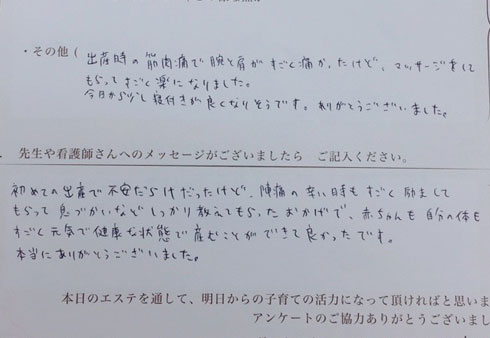 ・その他(出産時の筋肉痛で腕と肩がすごく痛かったけど、マッサージをして
もらってすごく楽になりました。
今日から少し寝付きが良くなりそうです。ありがとうございました。
先生や看護師さんへのメッセージがございましたら ご記入ください。
初めての出産で不安だらけだったけど、陣痛の辛い時もすごく励まして
もらって息づかいなどしっかり教えてもらったおかげで、赤ちゃんも自分の体も
すごく元気で健康な状態で産むことができて良かったです。
本当にありがとうございました。
本日のエステを通して、明日からの子育ての活力になって頂ければと思いま
アンケートのご協力ありがとうございまし